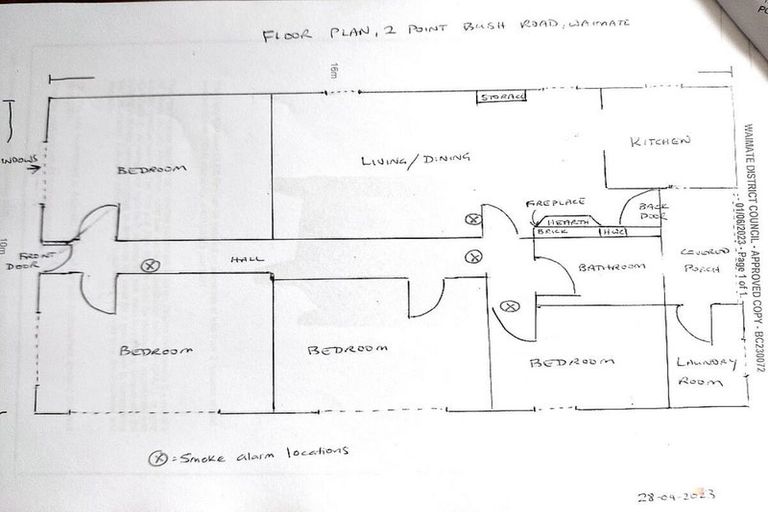 FLOOR PLAN, 2 POINT BUSH ROAD, WAIMATE
16m
STORAGE
KITCHEN
LIVING/DINING
BEDROOM
FIREPLACE
HEARTH
BRICK
HWC
BACK
DOOR
FRONT
DOOR
10m
HALL
BATHROOM
COVERED
PORCH
BEDROOM
BEDROOM
BEDROOM
LAUNDRY
ROOM
X = Smoke alarm locations
28-04-2023
WAIMATE DISTRICT COUNCIL - APPROVED COPY - BC230072
- 01/06/2023 - Page 1 of 1